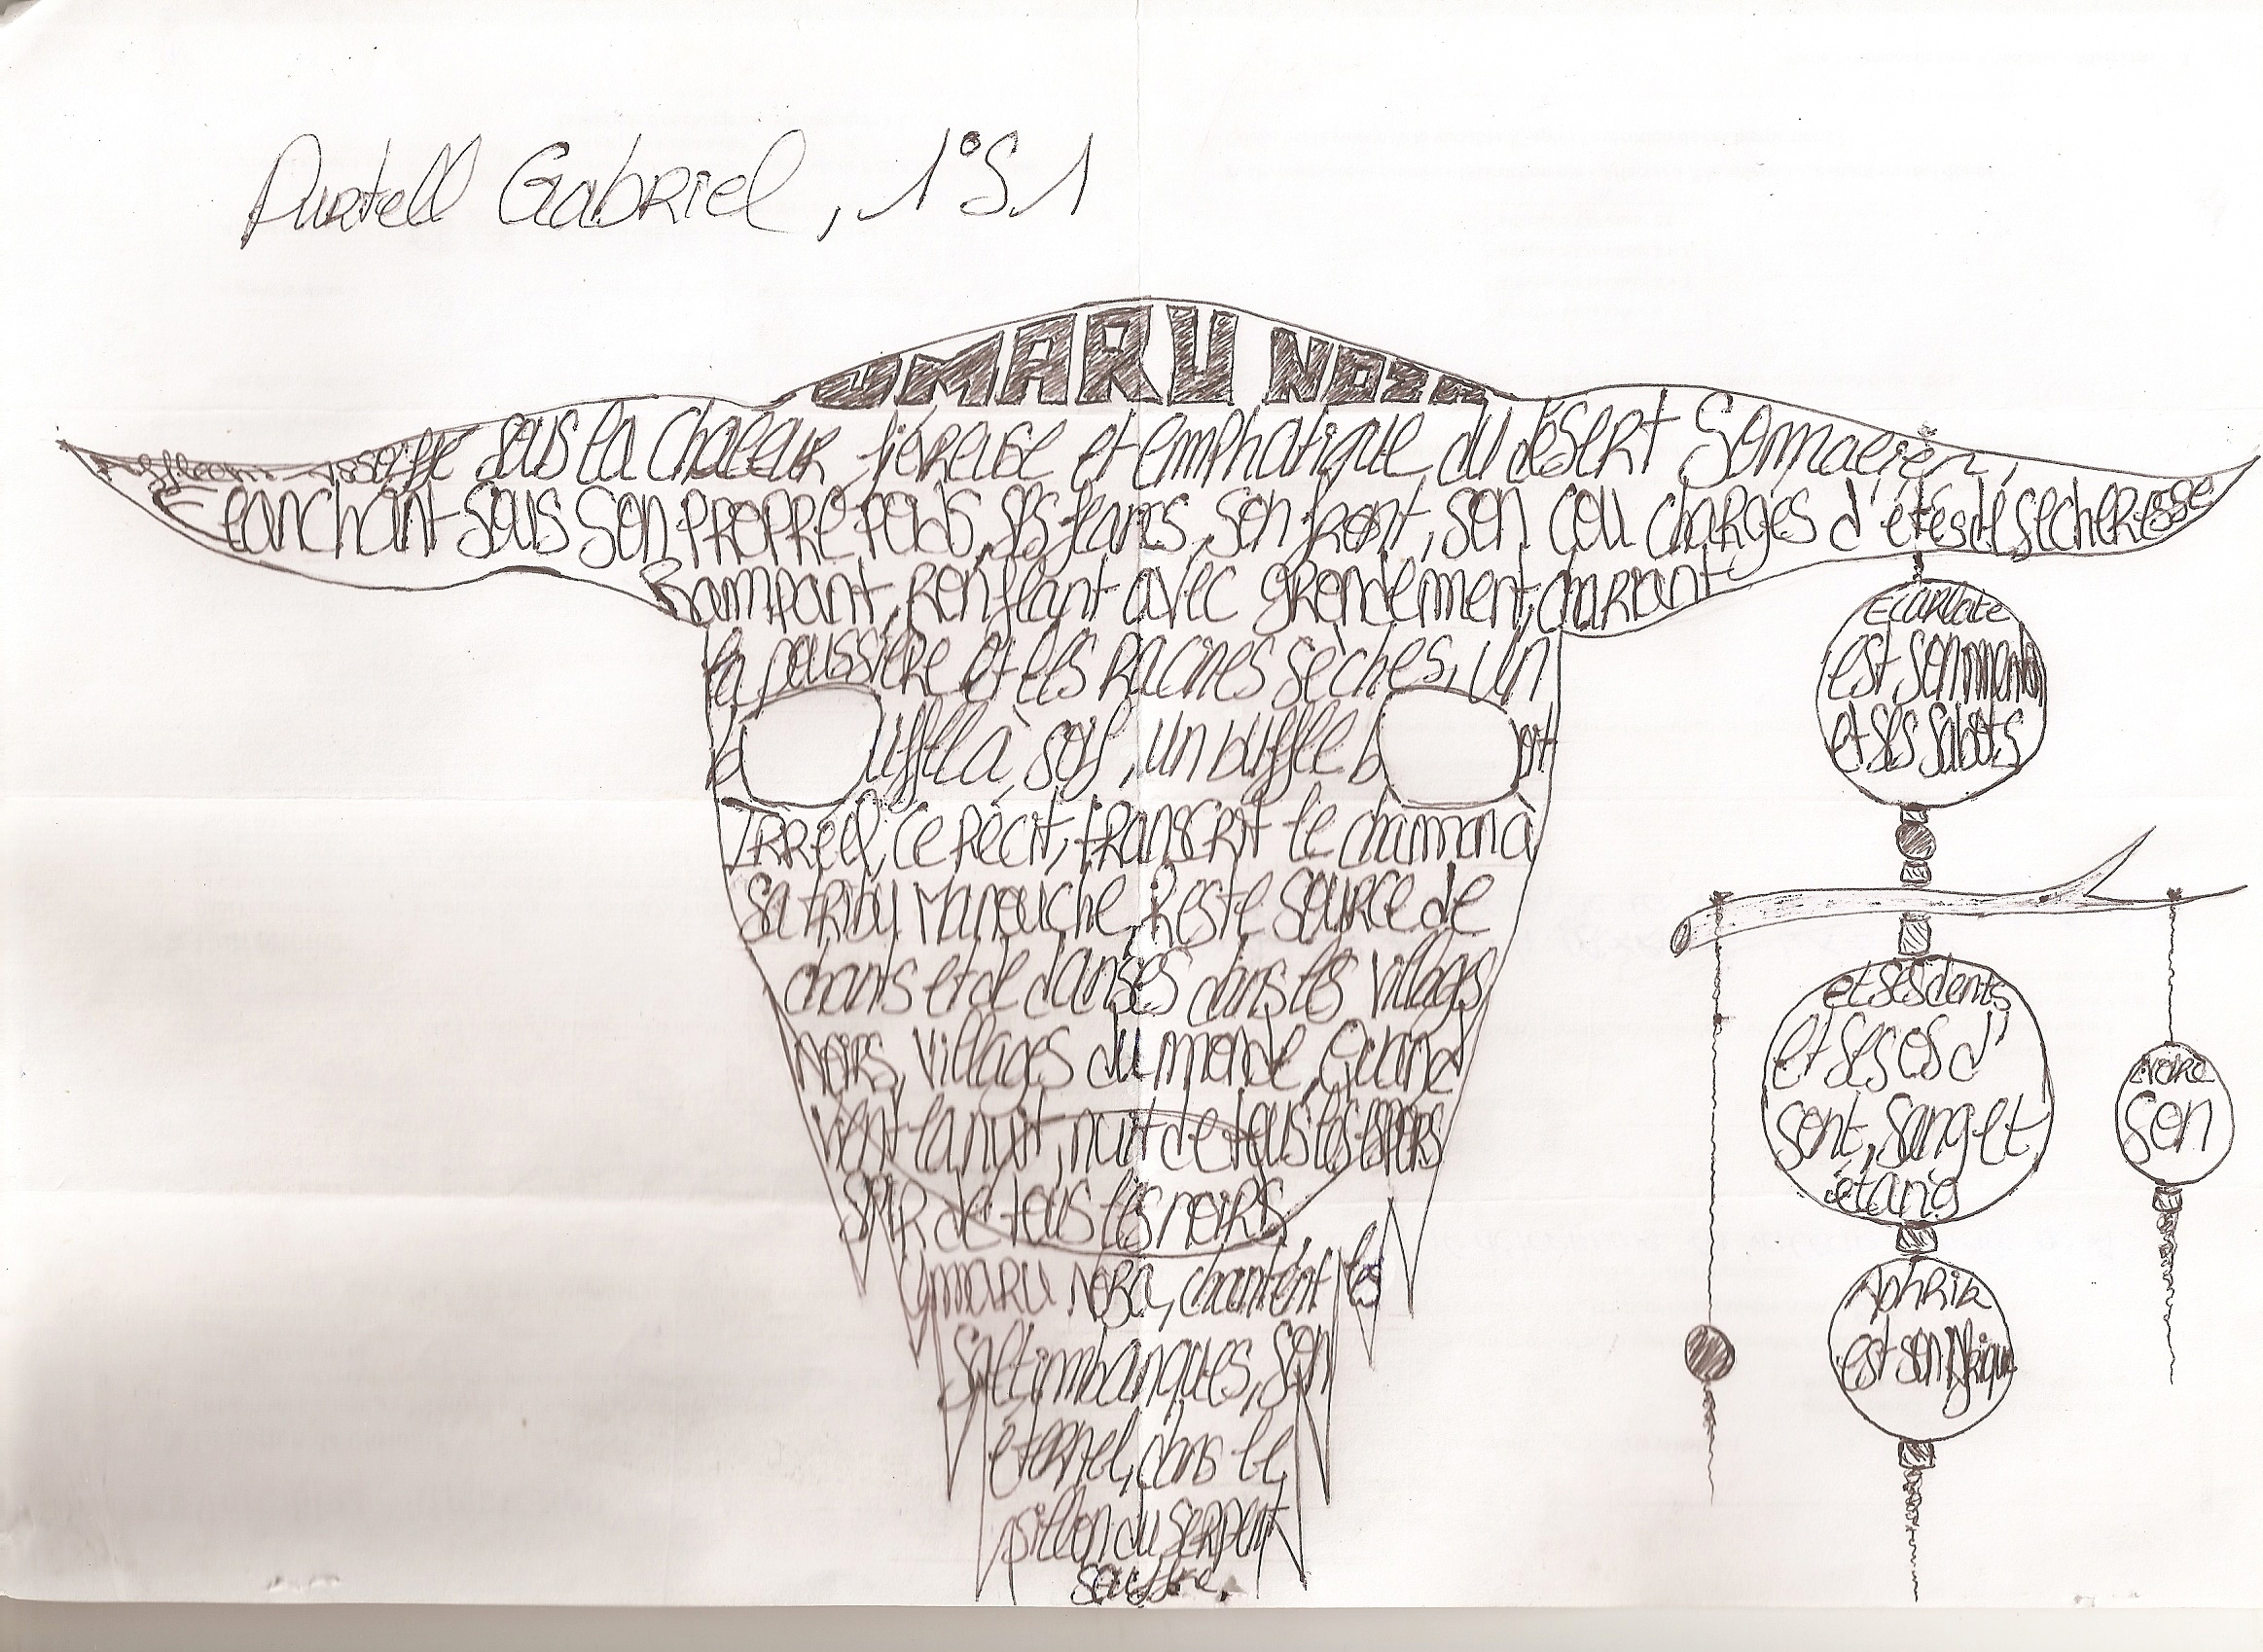 Purtell Gabriel, 1°S1
UMARU NORA
assoiffé sous la chaleur fiévreuse et emphatique du désert Somalien,
Flanchant sous son propre poids, ses flancs, son front, son cou chargés d'étés de sècheresse
Rampant, Ronflant avec grondement, charriant
la poussière et les racines sèches, un
buffle à soif, un buffle boit
Irréel, ce récit, transcrit le chaman à
sa tribu Manouche, Reste source de
chants et de danses dans les villages
noirs, villages du monde, Quand
vient la nuit, nuit de tous les espoirs
soir de tous les noirs,
Umaru Nora, chantent les
saltimbanques, son
éternel, dans le
sillon du serpent
souffre.
Ecarlate
est son menton
et ses sabots,
et ses dents
et ses os d'
sont, sang et
étang
Noire
son
Aphrik
est son Afrique